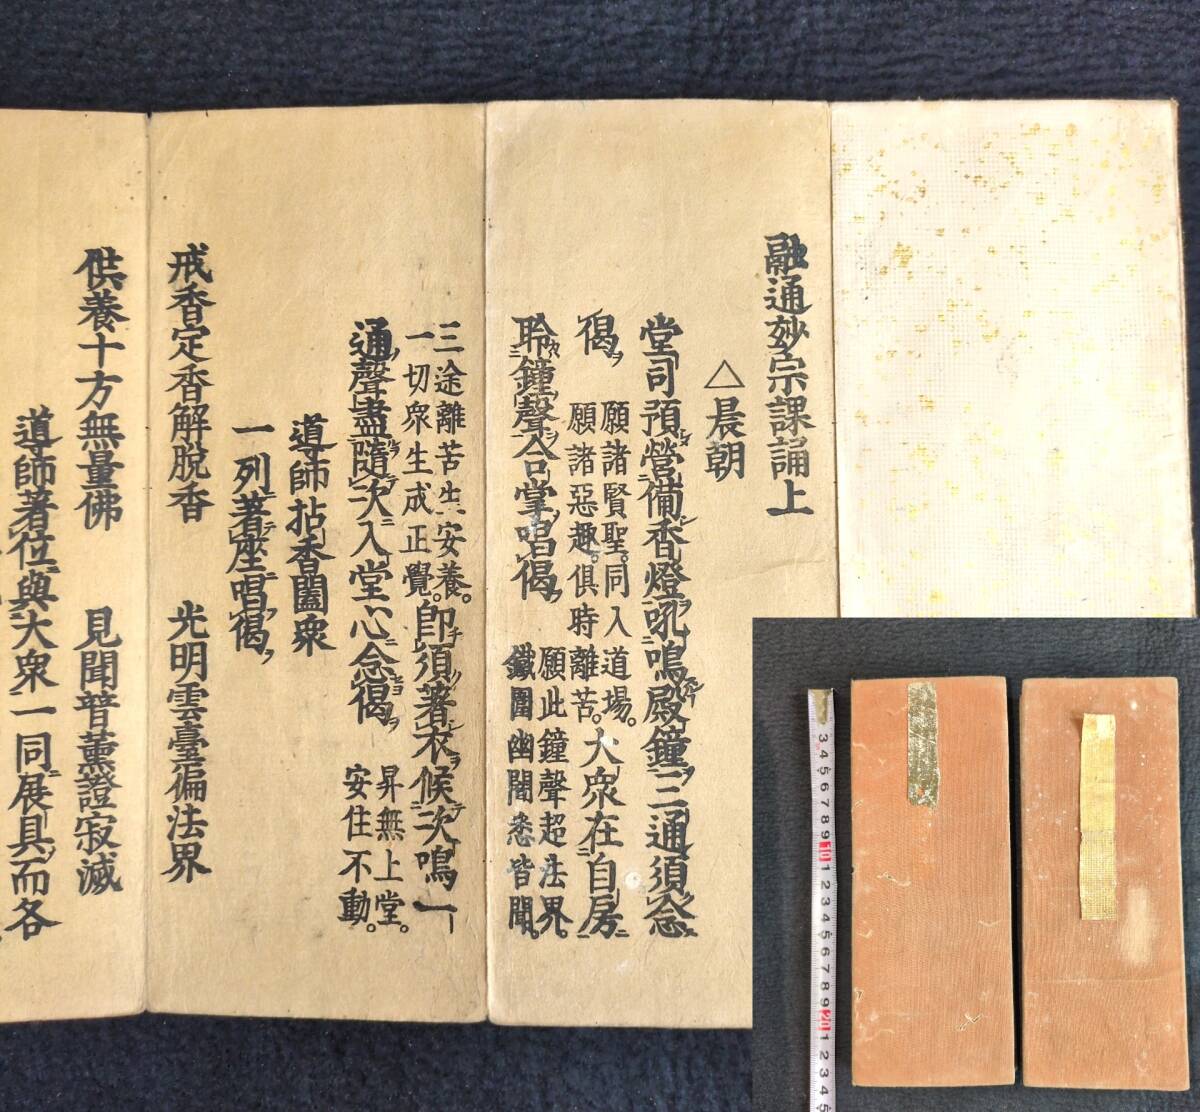 融通妙宗課誦上
△晨朝
堂司預營備香燈吼鳴殿鐘三通須念
偈 願諸賢聖。同入道場。願諸惡趣。俱時離苦。大衆在自房
聆鐘聲合掌唱偈 願此鐘聲超法界。鐵圍幽闇悉皆聞。
三途離苦生安養。一切衆生成正覺。即須著衣候次鳴一
通聲盡隨次入堂心念偈 昇無上堂。安住不動。
導師拈香闔衆
一列著座唱偈
戒香定香解脫香 光明雲臺徧法界
供養十方無量佛 見聞普薰證寂滅
導師著位與大衆一同展具而各
3 4 5 6 7 8 9 10 1 2 3 4 5 6 7 8 9 20 1 2 3 4 5